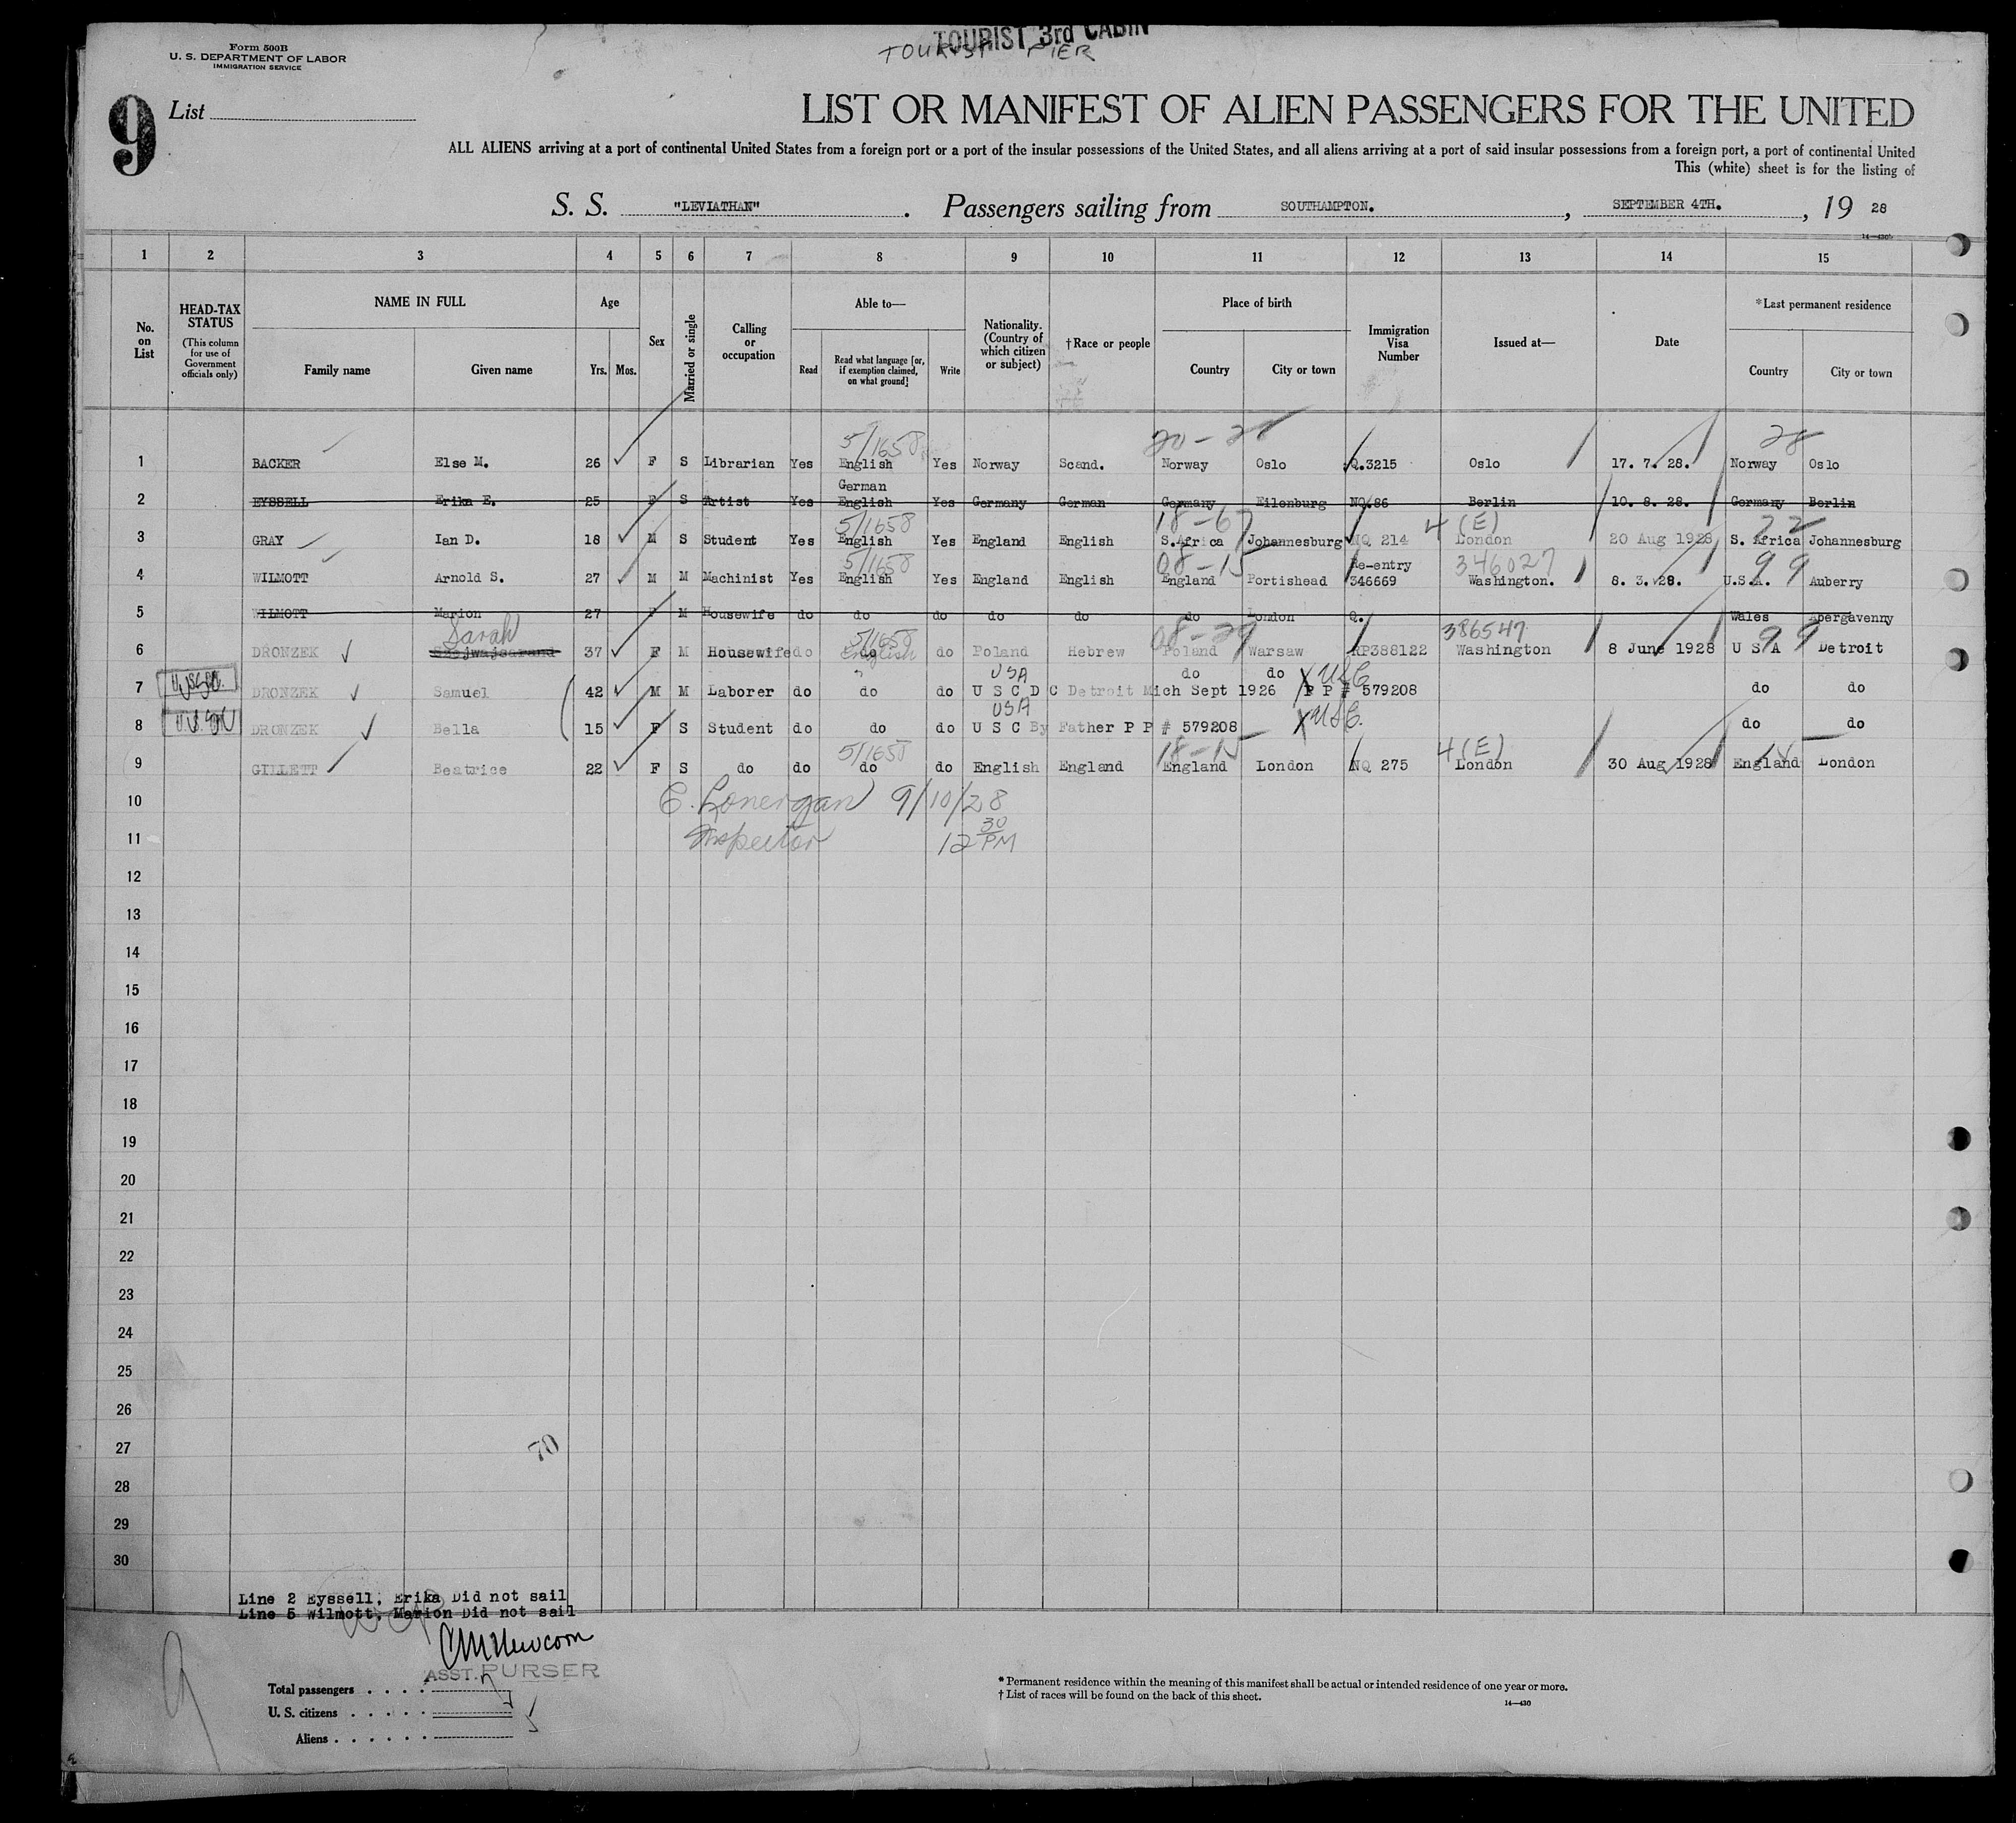 TOURIST 3rd CABIN
TOURIST PIER
Form 500B
U. S. DEPARTMENT OF LABOR
IMMIGRATION SERVICE
9 List
LIST OR MANIFEST OF ALIEN PASSENGERS FOR THE UNITED
ALL ALIENS arriving at a port of continental United States from a foreign port or a port of the insular possessions of the United States, and all aliens arriving at a port of said insular possessions from a foreign port, a port of continental United
This (white) sheet is for the listing of
S. S. "LEVIATHAN". Passengers sailing from SOUTHAMPTON., SEPTEMBER 4TH., 19 28
1 2 3 4 5 6 7 8 9 10 11 12 13 14 15
No. on List
HEAD-TAX STATUS (This column for use of Government officials only)
NAME IN FULL Family name Given name
Age Yrs. Mos.
Sex
Married or single
Calling or occupation
Able to— Read Read what language [or, if exemption claimed, on what ground] Write
Nationality. (Country of which citizen or subject)
†Race or people
Place of birth Country City or town
Immigration Visa Number
Issued at—
Date
*Last permanent residence Country City or town
5/1658 20-28 28
1 BACKER Else M. 26 F S Librarian Yes English Yes Norway Scand. Norway Oslo Q.3215 Oslo 17. 7. 28. Norway Oslo
German
2 EYSSELL Erika E. 25 F S Artist Yes English Yes Germany German Germany Eilenburg NQ.86 Berlin 10. 8. 28. Germany Berlin
5/1658 18-6 4 (E) 22
3 GRAY Ian D. 18 M S Student Yes English Yes England English S.Africa Johannesburg NQ 214 London 20 Aug 1928 S. Africa Johannesburg
5/1658 08-15 Re-entry 346027 99
4 WILMOTT Arnold S. 27 M M Machinist Yes English Yes England English England Portishead 346669 Washington. 8. 3. 28. U.S.A. Auberry
5 WILMOTT Marion 27 F M Housewife do do do do do do London Q. Wales Abergavenny
Sarah 5/1658 08-29 386547 99
6 DRONZEK 37 F M Housewife do do English do Poland Hebrew Poland Warsaw RP388122 Washington 8 June 1928 U S A Detroit
USA do do USC
7 DRONZEK Samuel 42 M M Laborer do do do U S C D C Detroit Mich Sept 1926 P P # 579208 do do
USA USC.
8 DRONZEK Bella 15 F S Student do do do U S C By Father P P # 579208 do do
5/1658 18-15 4 (E)
9 GILLETT Beatrice 22 F S do do do do English England England London NQ 275 London 30 Aug 1928 England London
10 C. Lonergan 9/10/28
11 Inspector 12 30 PM
12
13
14
15
16
17
18
19
20
21
22
23
24
25
26
27
70
28
29
30
Line 2 Eyssell, Erika Did not sail
Line 5 Wilmott, Marion Did not sail
CM Newcom
ASST. PURSER
Total passengers . . . . 7
U. S. citizens . . . . .
Aliens . . . . . .
9
* Permanent residence within the meaning of this manifest shall be actual or intended residence of one year or more.
† List of races will be found on the back of this sheet.
14—430